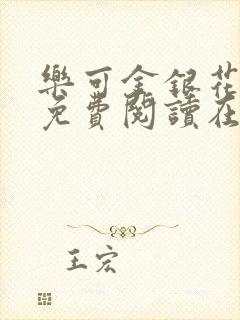 樂可金銀花
免費閱讀在
王宏